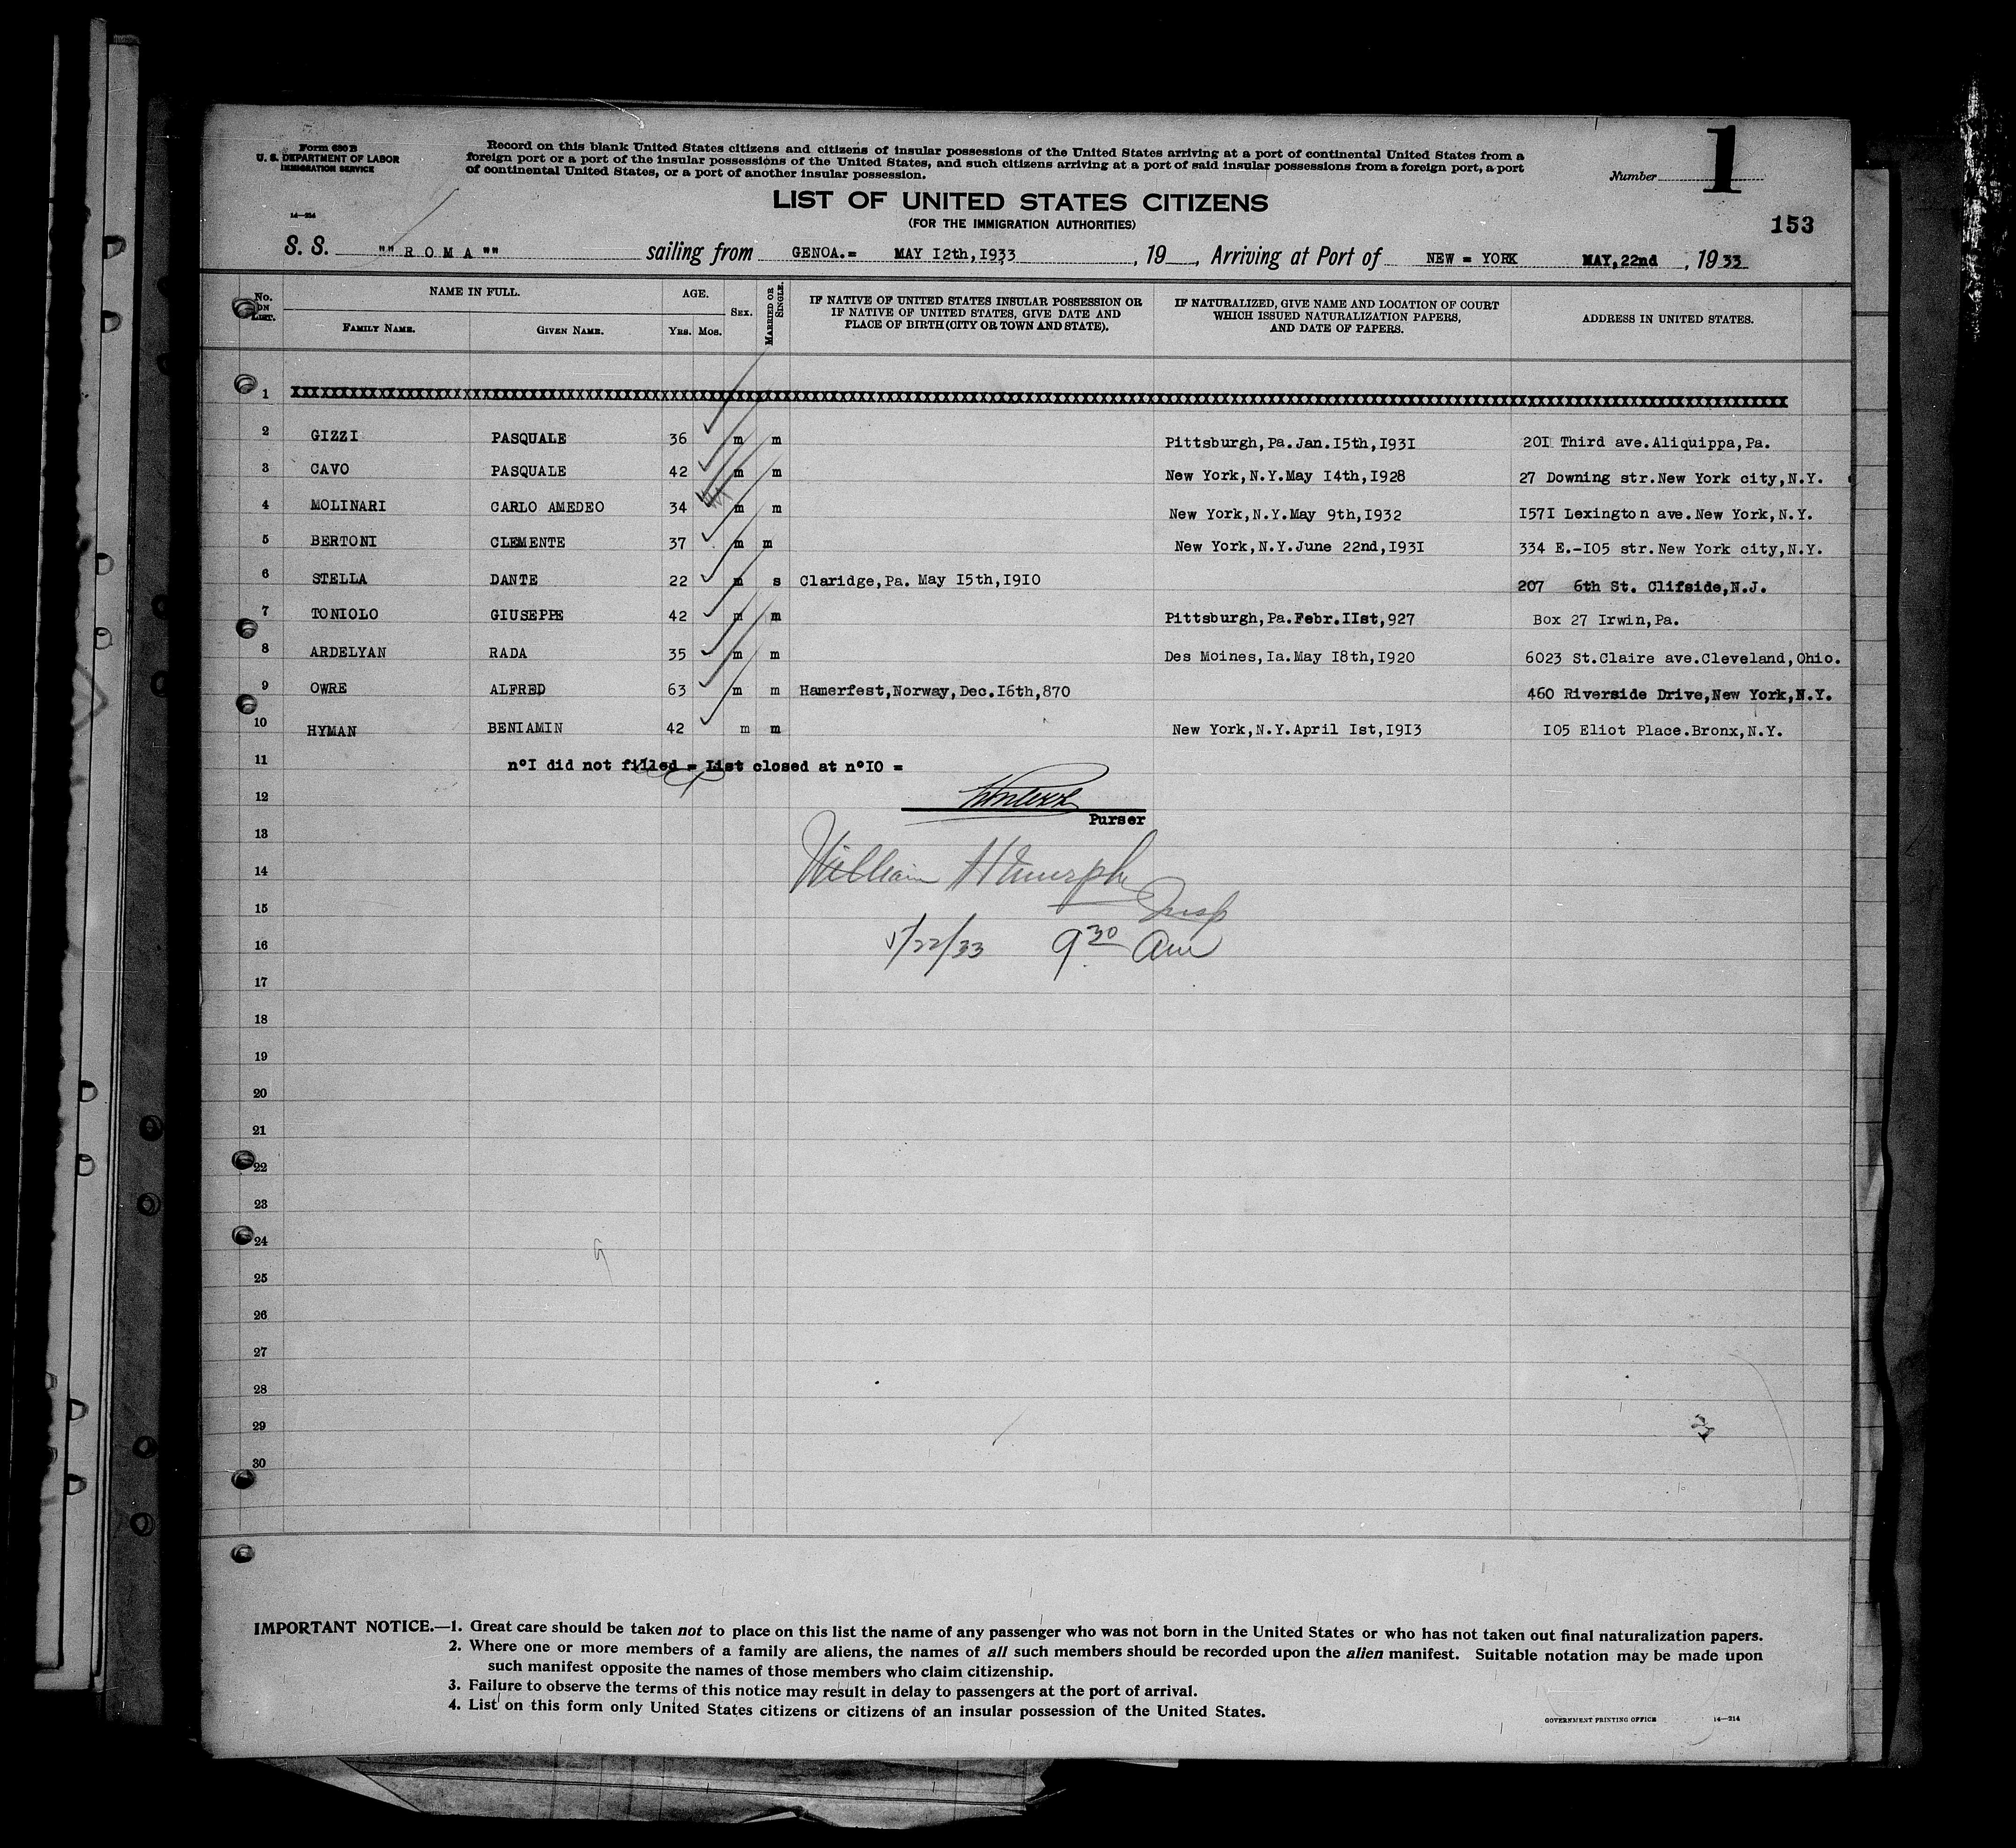 Form 630 B
U. S. DEPARTMENT OF LABOR
IMMIGRATION SERVICE
Record on this blank United States citizens and citizens of insular possessions of the United States arriving at a port of continental United States from a
foreign port or a port of the insular possessions of the United States, and such citizens arriving at a port of said insular possessions from a foreign port, a port
of continental United States, or a port of another insular possession.
Number 1
14—214
LIST OF UNITED STATES CITIZENS
(FOR THE IMMIGRATION AUTHORITIES)
153
S. S. ""ROMA"" sailing from GENOA.= MAY I2th,I933, 19 , Arriving at Port of NEW = YORK MAY,22nd, 1933
No. ON LIST. NAME IN FULL. AGE. SEX. MARRIED OR SINGLE. IF NATIVE OF UNITED STATES INSULAR POSSESSION OR IF NATIVE OF UNITED STATES, GIVE DATE AND PLACE OF BIRTH (CITY OR TOWN AND STATE). IF NATURALIZED, GIVE NAME AND LOCATION OF COURT WHICH ISSUED NATURALIZATION PAPERS, AND DATE OF PAPERS. ADDRESS IN UNITED STATES.
FAMILY NAME. GIVEN NAME. YRS. MOS.
1
2 GIZZI PASQUALE 36 m m Pittsburgh,Pa.Jan.I5th,I93I 20I Third ave.Aliquippa,Pa.
3 CAVO PASQUALE 42 m m New York,N.Y.May I4th,I928 27 Downing str.New York city,N.Y.
4 MOLINARI CARLO AMEDEO 34 m m New York,N.Y.May 9th,I932 I57I Lexington ave.New York,N.Y.
5 BERTONI CLEMENTE 37 m m New York,N.Y.June 22nd,I93I 334 E.-I05 str.New York city,N.Y.
6 STELLA DANTE 22 m s Claridge,Pa. May I5th,I9I0 207 6th St. Clifside,N.J.
7 TONIOLO GIUSEPPE 42 m m Pittsburgh,Pa.Febr.IIst,927 Box 27 Irwin,Pa.
8 ARDELYAN RADA 35 m m Des Moines,Ia.May I8th,I920 6023 St.Claire ave.Cleveland,Ohio.
9 OWRE ALFRED 63 m m Hamerfest,Norway,Dec.I6th,870 460 Riverside Drive,New York,N.Y.
10 HYMAN BENIAMIN 42 m m New York,N.Y.April Ist,I9I3 I05 Eliot Place.Bronx,N.Y.
11 n°I did not filled = List closed at n°I0 =
12
Purser
13
14 William H Murphy
15 Insp
16 5/22/33 9 30 am
17
18
19
20
21
22
23
24
25
26
27
28
29
30
IMPORTANT NOTICE.—1. Great care should be taken not to place on this list the name of any passenger who was not born in the United States or who has not taken out final naturalization papers.
2. Where one or more members of a family are aliens, the names of all such members should be recorded upon the alien manifest. Suitable notation may be made upon
such manifest opposite the names of those members who claim citizenship.
3. Failure to observe the terms of this notice may result in delay to passengers at the port of arrival.
4. List on this form only United States citizens or citizens of an insular possession of the United States.
GOVERNMENT PRINTING OFFICE 14—214